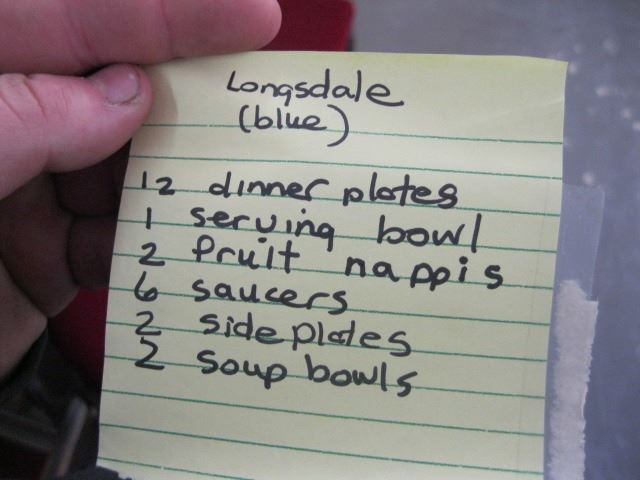 Longsdale
(blue)
12 dinner plates
1 serving bowl
2 fruit nappis
6 saucers
2 side plates
2 soup bowls